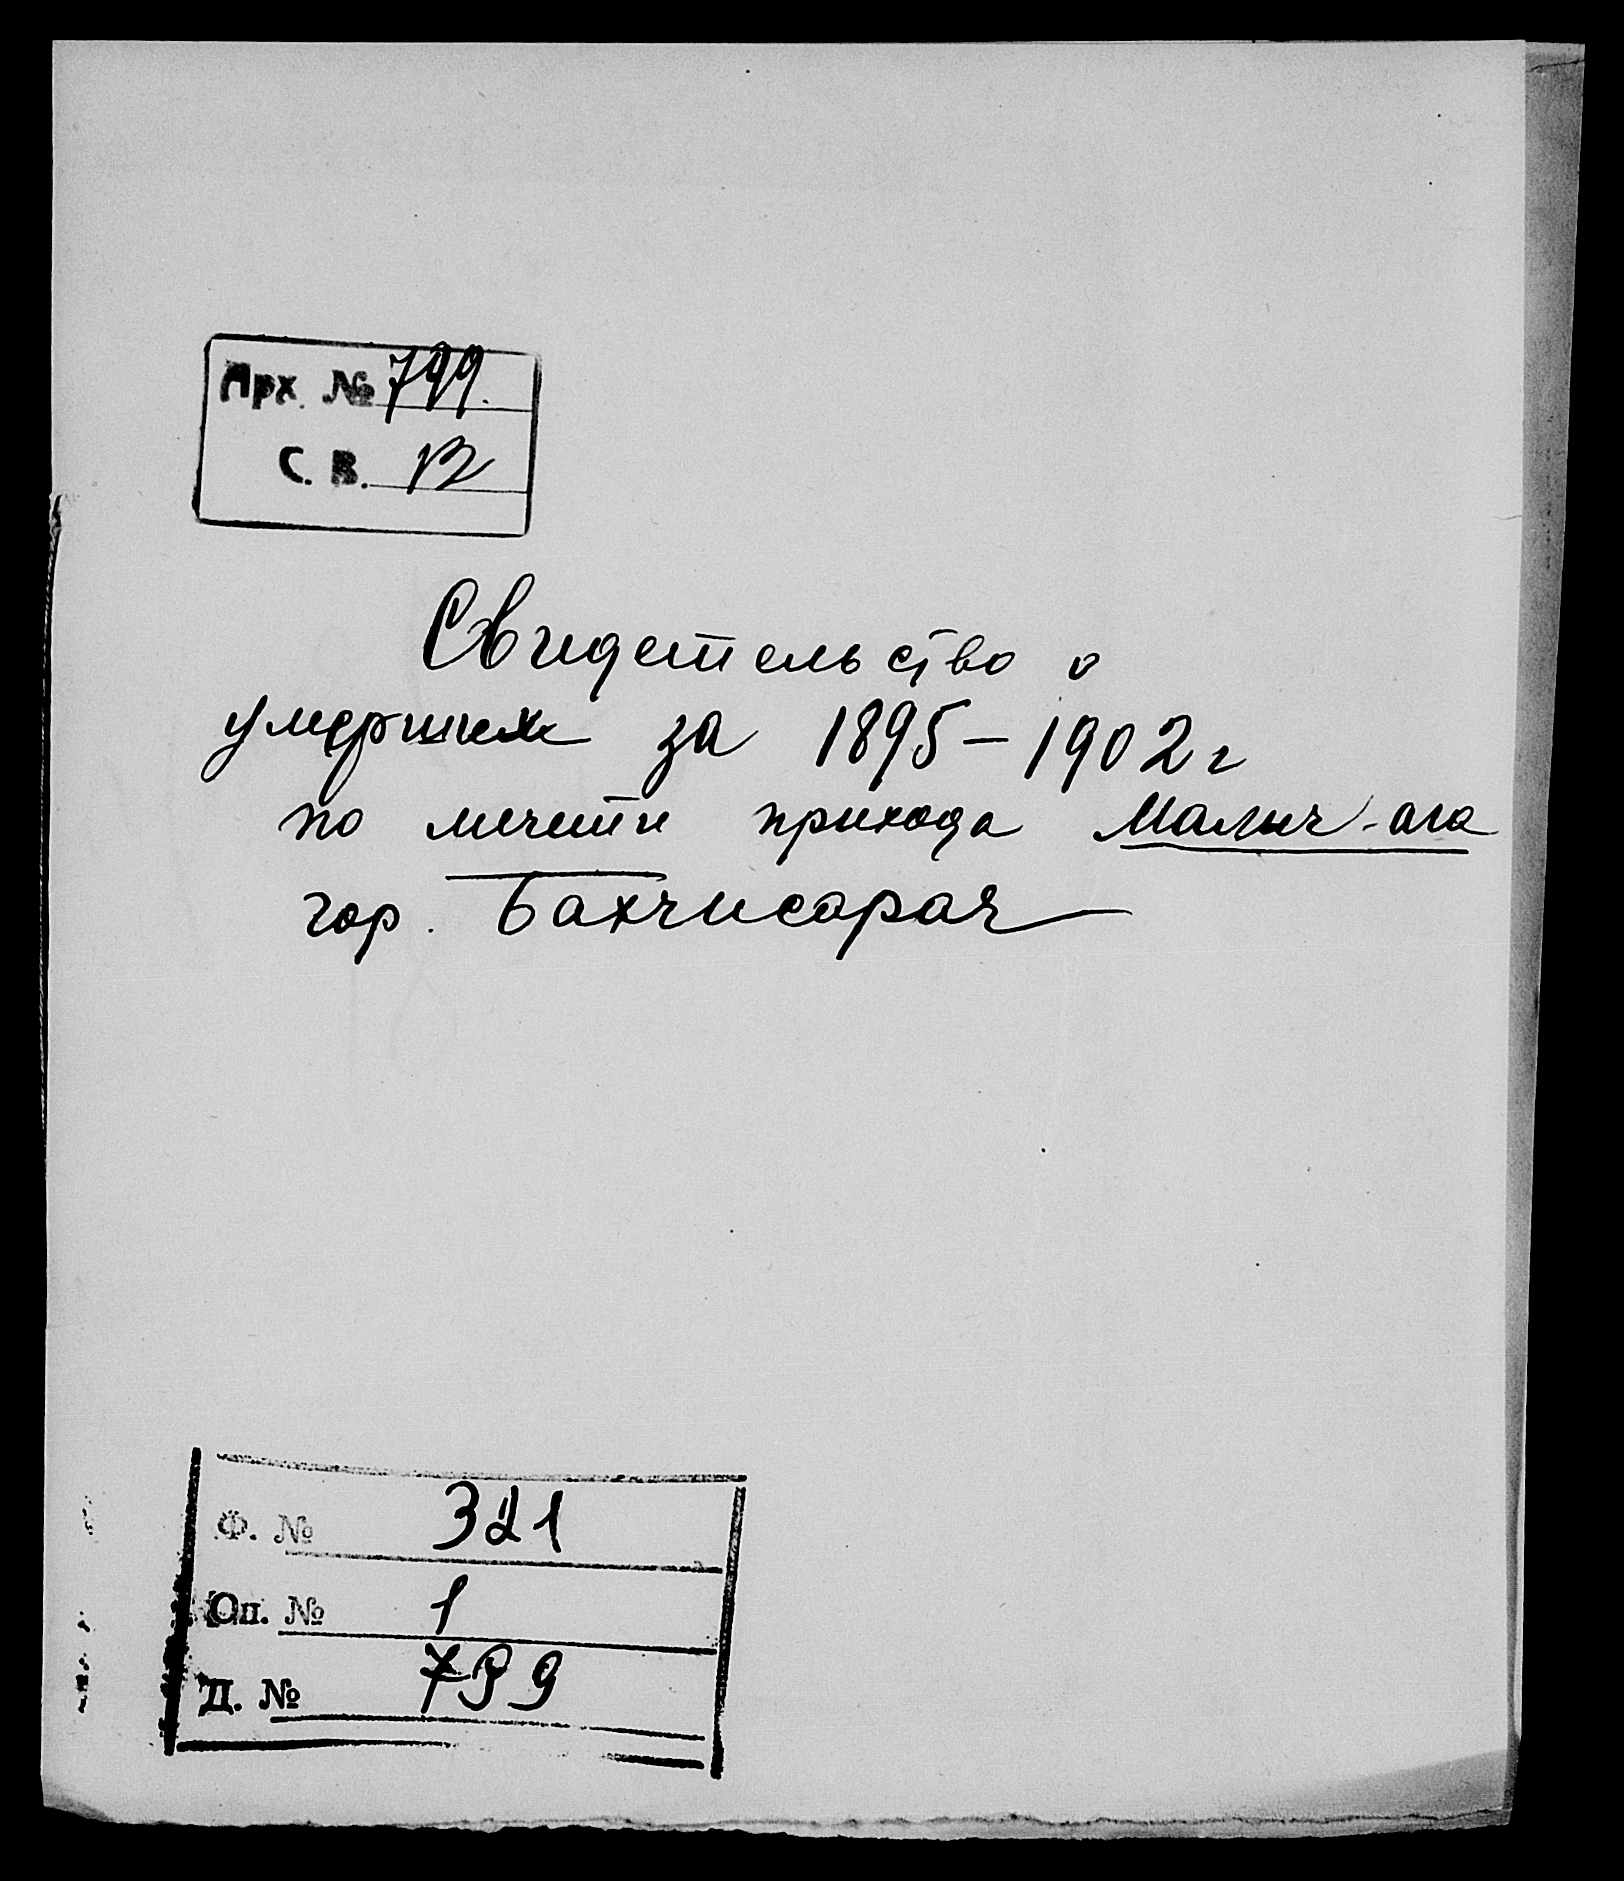 Арх. № 799.
С. В. В
Свидетельство о
умерших за 1895-1902 г
по мечети прихода Малыч-ага
гор. Бахчисарая
Ф. № 321
Оп. № 1
Д. № 799